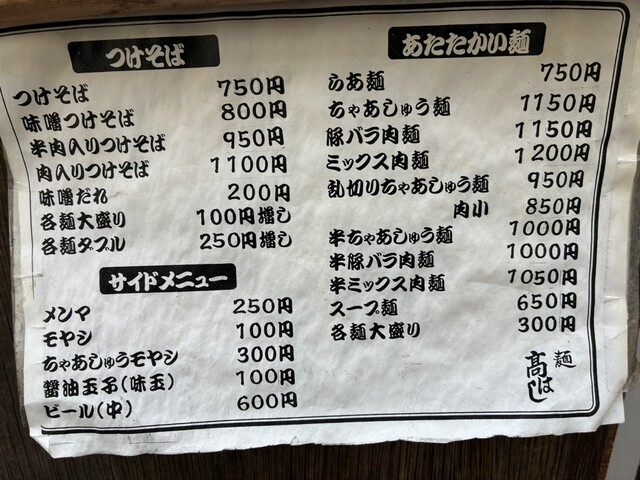 つけそば
つけそば 750円
味噌つけそば 800円
半肉入りつけそば 950円
肉入りつけそば 1100円
味噌だれ 200円
各麺大盛り 100円増し
各麺ダブル 250円増し
サイドメニュー
メンマ 250円
モヤシ 100円
ちゃあしゅうモヤシ 300円
醤油玉子(味玉) 100円
ビール(中) 600円
あたたかい麺
らあ麺 750円
ちゃあしゅう麺 1150円
豚バラ肉麺 1150円
ミックス肉麺 1200円
乱切りちゃあしゅう麺 950円
肉小 850円
半ちゃあしゅう麺 1000円
半豚バラ肉麺 1000円
半ミックス肉麺 1050円
スープ麺 650円
各麺大盛り 300円
麺
髙はし